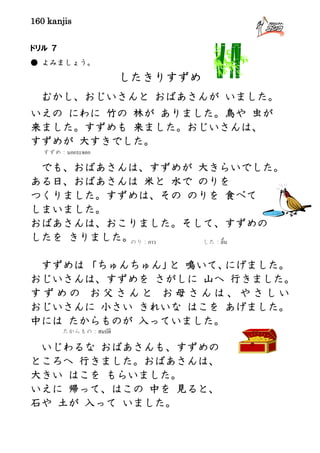 160 kanjis
ドリル 7
● よみましょう。
したきりすずめ
むかし、おじいさんと おばあさんが いました。
いえの にわに 竹の 林が ありました。鳥や 虫が
来ました。すずめも 来ました。おじいさんは、
すずめが 大すきでした。
すずめ：นกกระจอก
でも、おばあさんは、すずめが 大きらいでした。
ある日、おばあさんは 米と 水で のりを
つくりました。すずめは、その のりを 食べて
しまいました。
おばあさんは、おこりました。そして、すずめの
したを きりました。
のり：กาว した：ลิ้น
すずめは 「ちゅんちゅん」と 鳴いて、にげました。
おじいさんは、すずめを さがしに 山へ 行きました。
すずめの お父さんと お母さんは、やさしい
おじいさんに 小さい きれいな はこを あげました。
中には たからものが 入っていました。
たからもの：สมบัติ
いじわるな おばあさんも、すずめの
ところへ 行きました。おばあさんは、
大きい はこを もらいました。
いえに 帰って、はこの 中を 見ると、
石や 土が 入って いました。